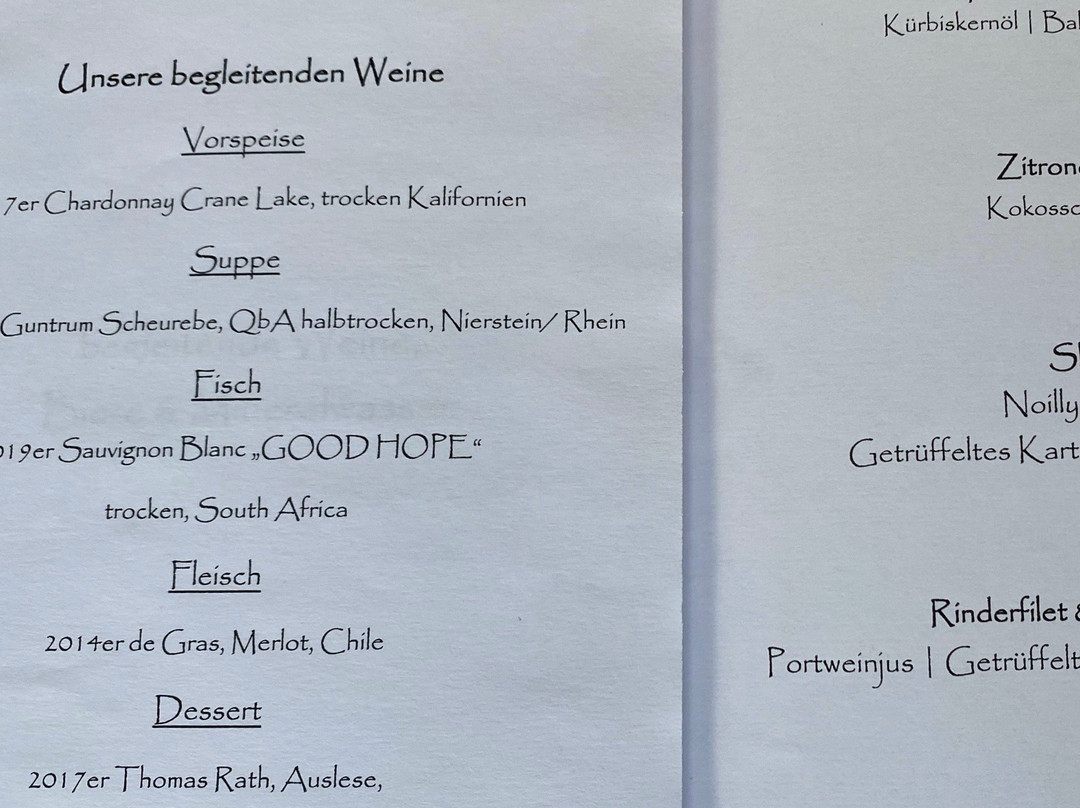 Unsere begleitenden Weine
Vorspeise
7er Chardonnay Crane Lake, trocken Kalifornien
Suppe
Guntrum Scheurebe, QbA halbtrocken, Nierstein/ Rhein
Fisch
019er Sauvignon Blanc „GOOD HOPE“
trocken, South Africa
Fleisch
2014er de Gras, Merlot, Chile
Dessert
2017er Thomas Rath, Auslese,
Kürbiskernöl | Bal
Zitron
Kokossc
Noilly
Getrüffeltes Kart
Rinderfilet &
Portweinjus | Getrüffelt